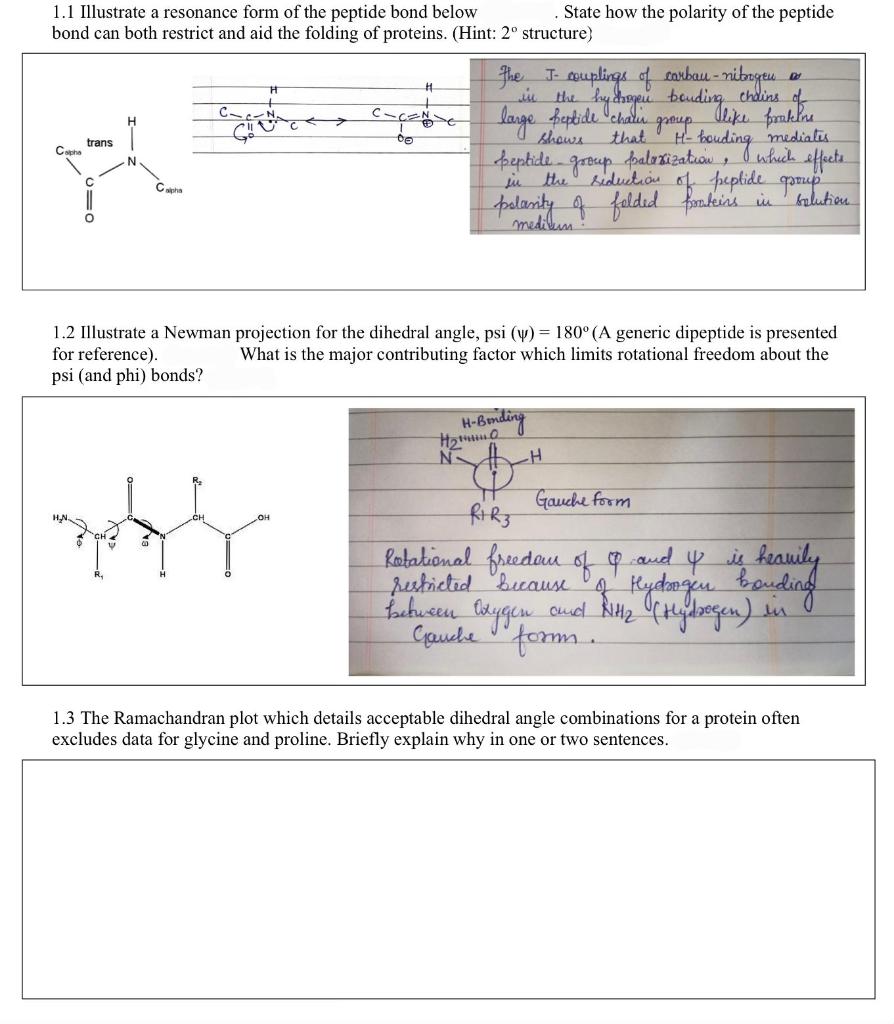 1.1 Illustrate a resonance form of the peptide bond below . State how the polarity of the peptide
bond can both restrict and aid the folding of proteins. (Hint: 2° structure)
H
trans
C alpha
N
C
C alpha
O
H
C C N C
O
H
C C=N C
⊕
O⊖
The J-couplings of carbau-nitrogeu
in the hydrogeu bouding chains of
large peptide chain group like proteins
shows that H-bouding mediates
peptide-group palarization, which effects
in the reduction of peptide group
polarity of folded proteins in solution
medium.
1.2 Illustrate a Newman projection for the dihedral angle, psi (ψ) = 180° (A generic dipeptide is presented
for reference). What is the major contributing factor which limits rotational freedom about the
psi (and phi) bonds?
O
R₂
H₂N
C
CH
OH
CH
N
ϕ
ψ
ω
R₁
H
O
H-Bonding
H2 O
N
H
R1 R3
Gauche form
Rotational freedom of φ and ψ is heavily
restricted because of Hydrogen bonding
between Oxygen and NH2 (Hydrogen) in
Gauche form.
1.3 The Ramachandran plot which details acceptable dihedral angle combinations for a protein often
excludes data for glycine and proline. Briefly explain why in one or two sentences.